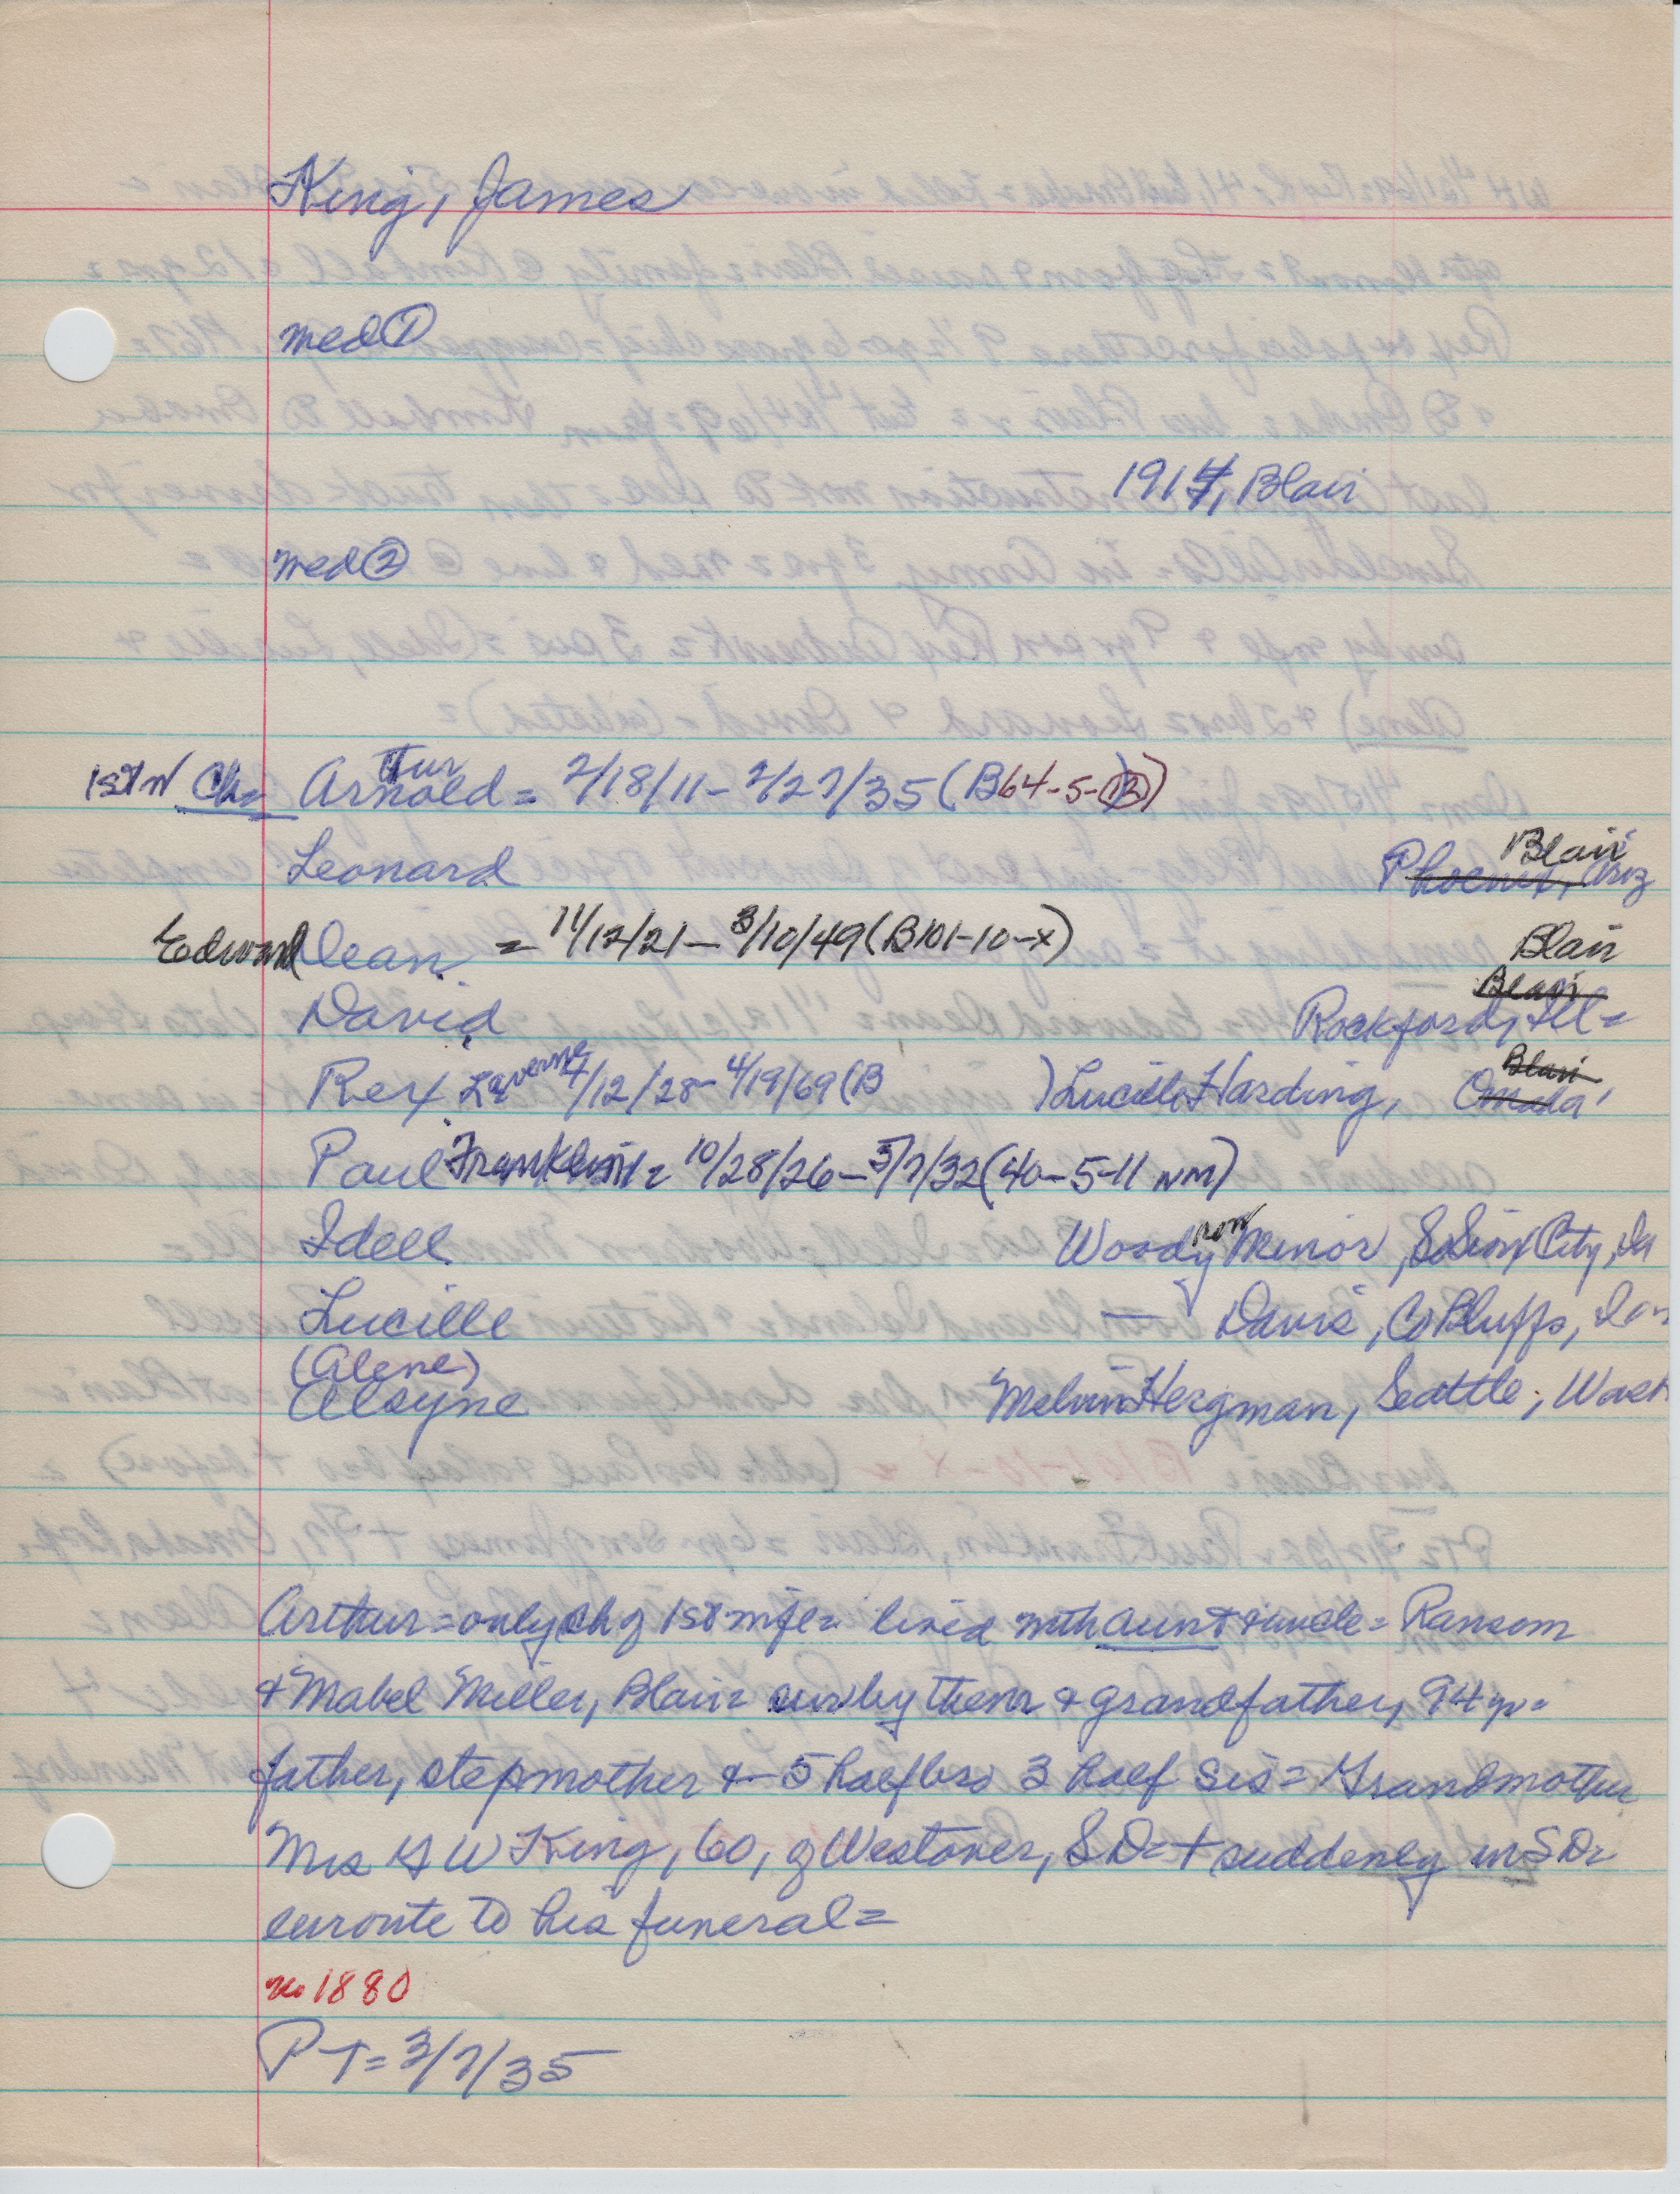 King, James
med ①
1914, Blair
med ②
1st w Ch= Arnold thur = 2/18/11 - 2/27/35 (B64-5-12)
Leonard Phoenix, Ariz Blair
Edward Dean = 11/12/21 - 3/10/49 (B101-10-x) Blair
David Rockford, Ill= Blair
Rex Laverne 4/12/28 - 4/19/69 (B ) Lucille Harding, Omaha Blair
Paul Franklin = 10/28/26 - 3/7/32 (40-5-11 NM)
Idell Woody now Minor, So Sioux City, Ia
Lucille — Davis, Co Bluffs, Ia
(Alene)
Alayne Melvin Hergman, Seattle, Wash
Arthur = only ch of 1st wife = lived with aunt & uncle = Ransom
& Mabel Miller, Blair = sur by them & grandfather, 94 yr =
father, stepmother & 5 half bro 3 half sis = Grandmother
Mrs G W King, 60, of Westover, S D = + suddenly in S D =
enroute to his funeral =
no 1880
P T = 3/7/35